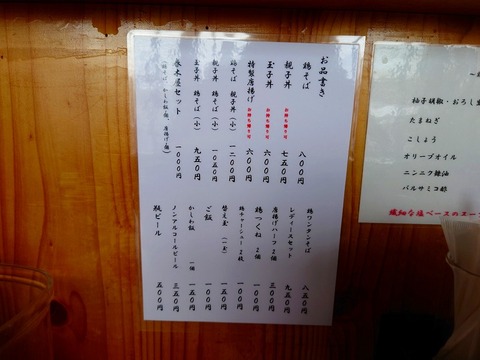 お品書き
鶏そば 八〇〇円
親子丼 お持ち帰り可 七五〇円
玉子丼 お持ち帰り可 六〇〇円
特製唐揚げ お持ち帰り可 六〇〇円
鶏そば 親子丼(小) 一二〇〇円
親子丼 鶏そば(小) 一〇五〇円
玉子丼 鶏そば(小) 九五〇円
セット 一〇〇〇円
鶏ワンタンそば 八五〇円
レディースセット 九五〇円
唐揚げハーフ 2個 三〇〇円
鶏つくね 2個 一〇〇円
鶏チャーシュー 2枚 一〇〇円
替え玉 (一玉) 一五〇円
ご飯 一〇〇円
かしわ飯 一個 一五〇円
ノンアルコールビール 三五〇円
瓶ビール 五〇〇円
柚子胡椒・おろし生
たまねぎ
こしょう
オリーブオイル
ニンニク辣油
バルサミコ酢
繊細な塩ベースのスー